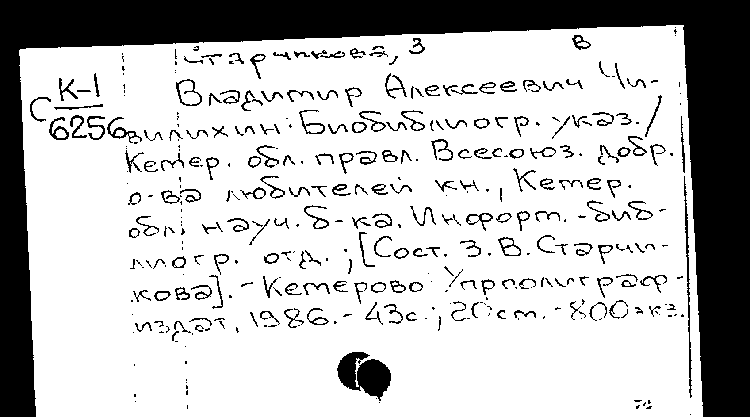 Старчикова, З В
К-1
С
6256
Владимир Алексеевич Чи-
вилихин: Биобиблиогр. указ./
Кемер. обл. правл. Всесоюз. добр.
о-ва любителей кн., Кемер.
обл. науч. б-ка. Информ.-биб-
лиогр. отд.; [Сост. З. В. Старчи-
кова]. - Кемерово: Упрполиграф-
издат, 1986. - 43с.; 20 см. - 800 экз.